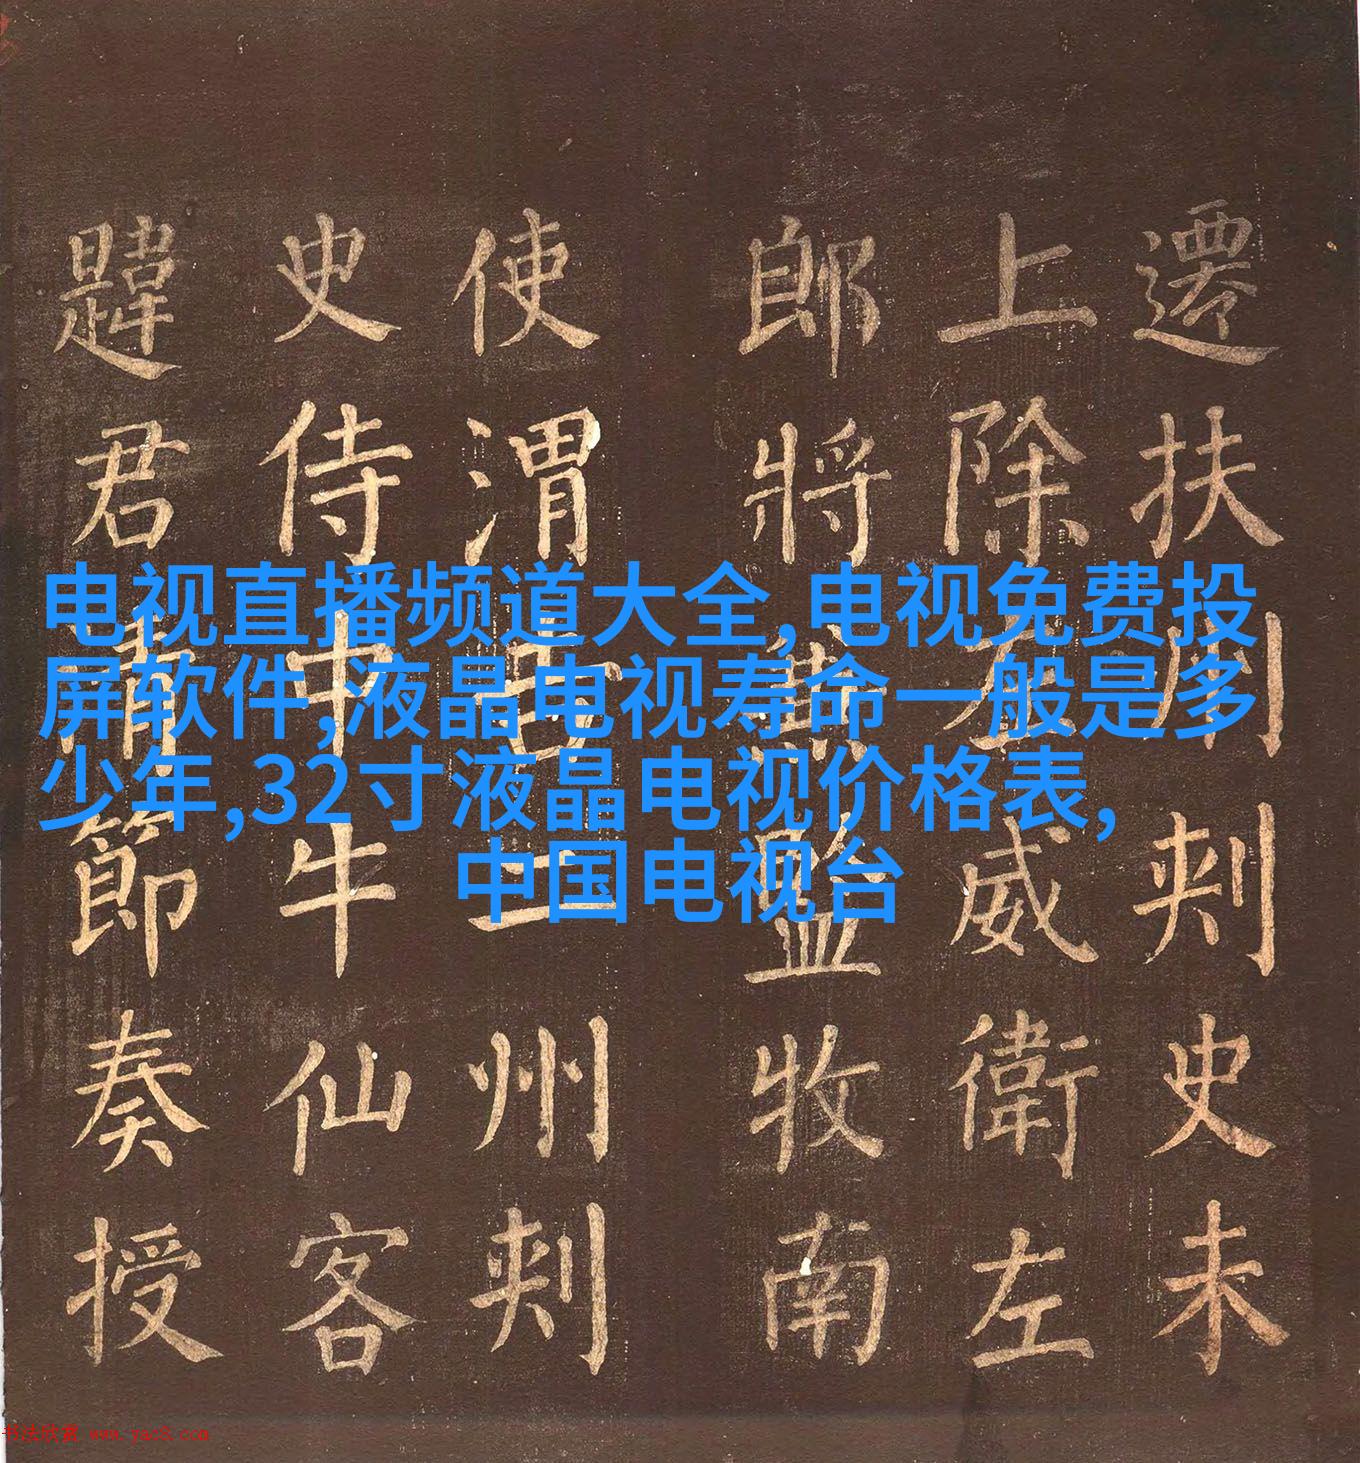 电视直播频道大全,电视免费投
屏软件,液晶电视寿命一般是多
少年,32寸液晶电视价格表,
中国电视台
遷扶州刾史未
上除威衛左
郎將監牧南
使渭二州刾
史侍中牛仙客
韙君清節奏授
书法欣赏 www.yac8.com